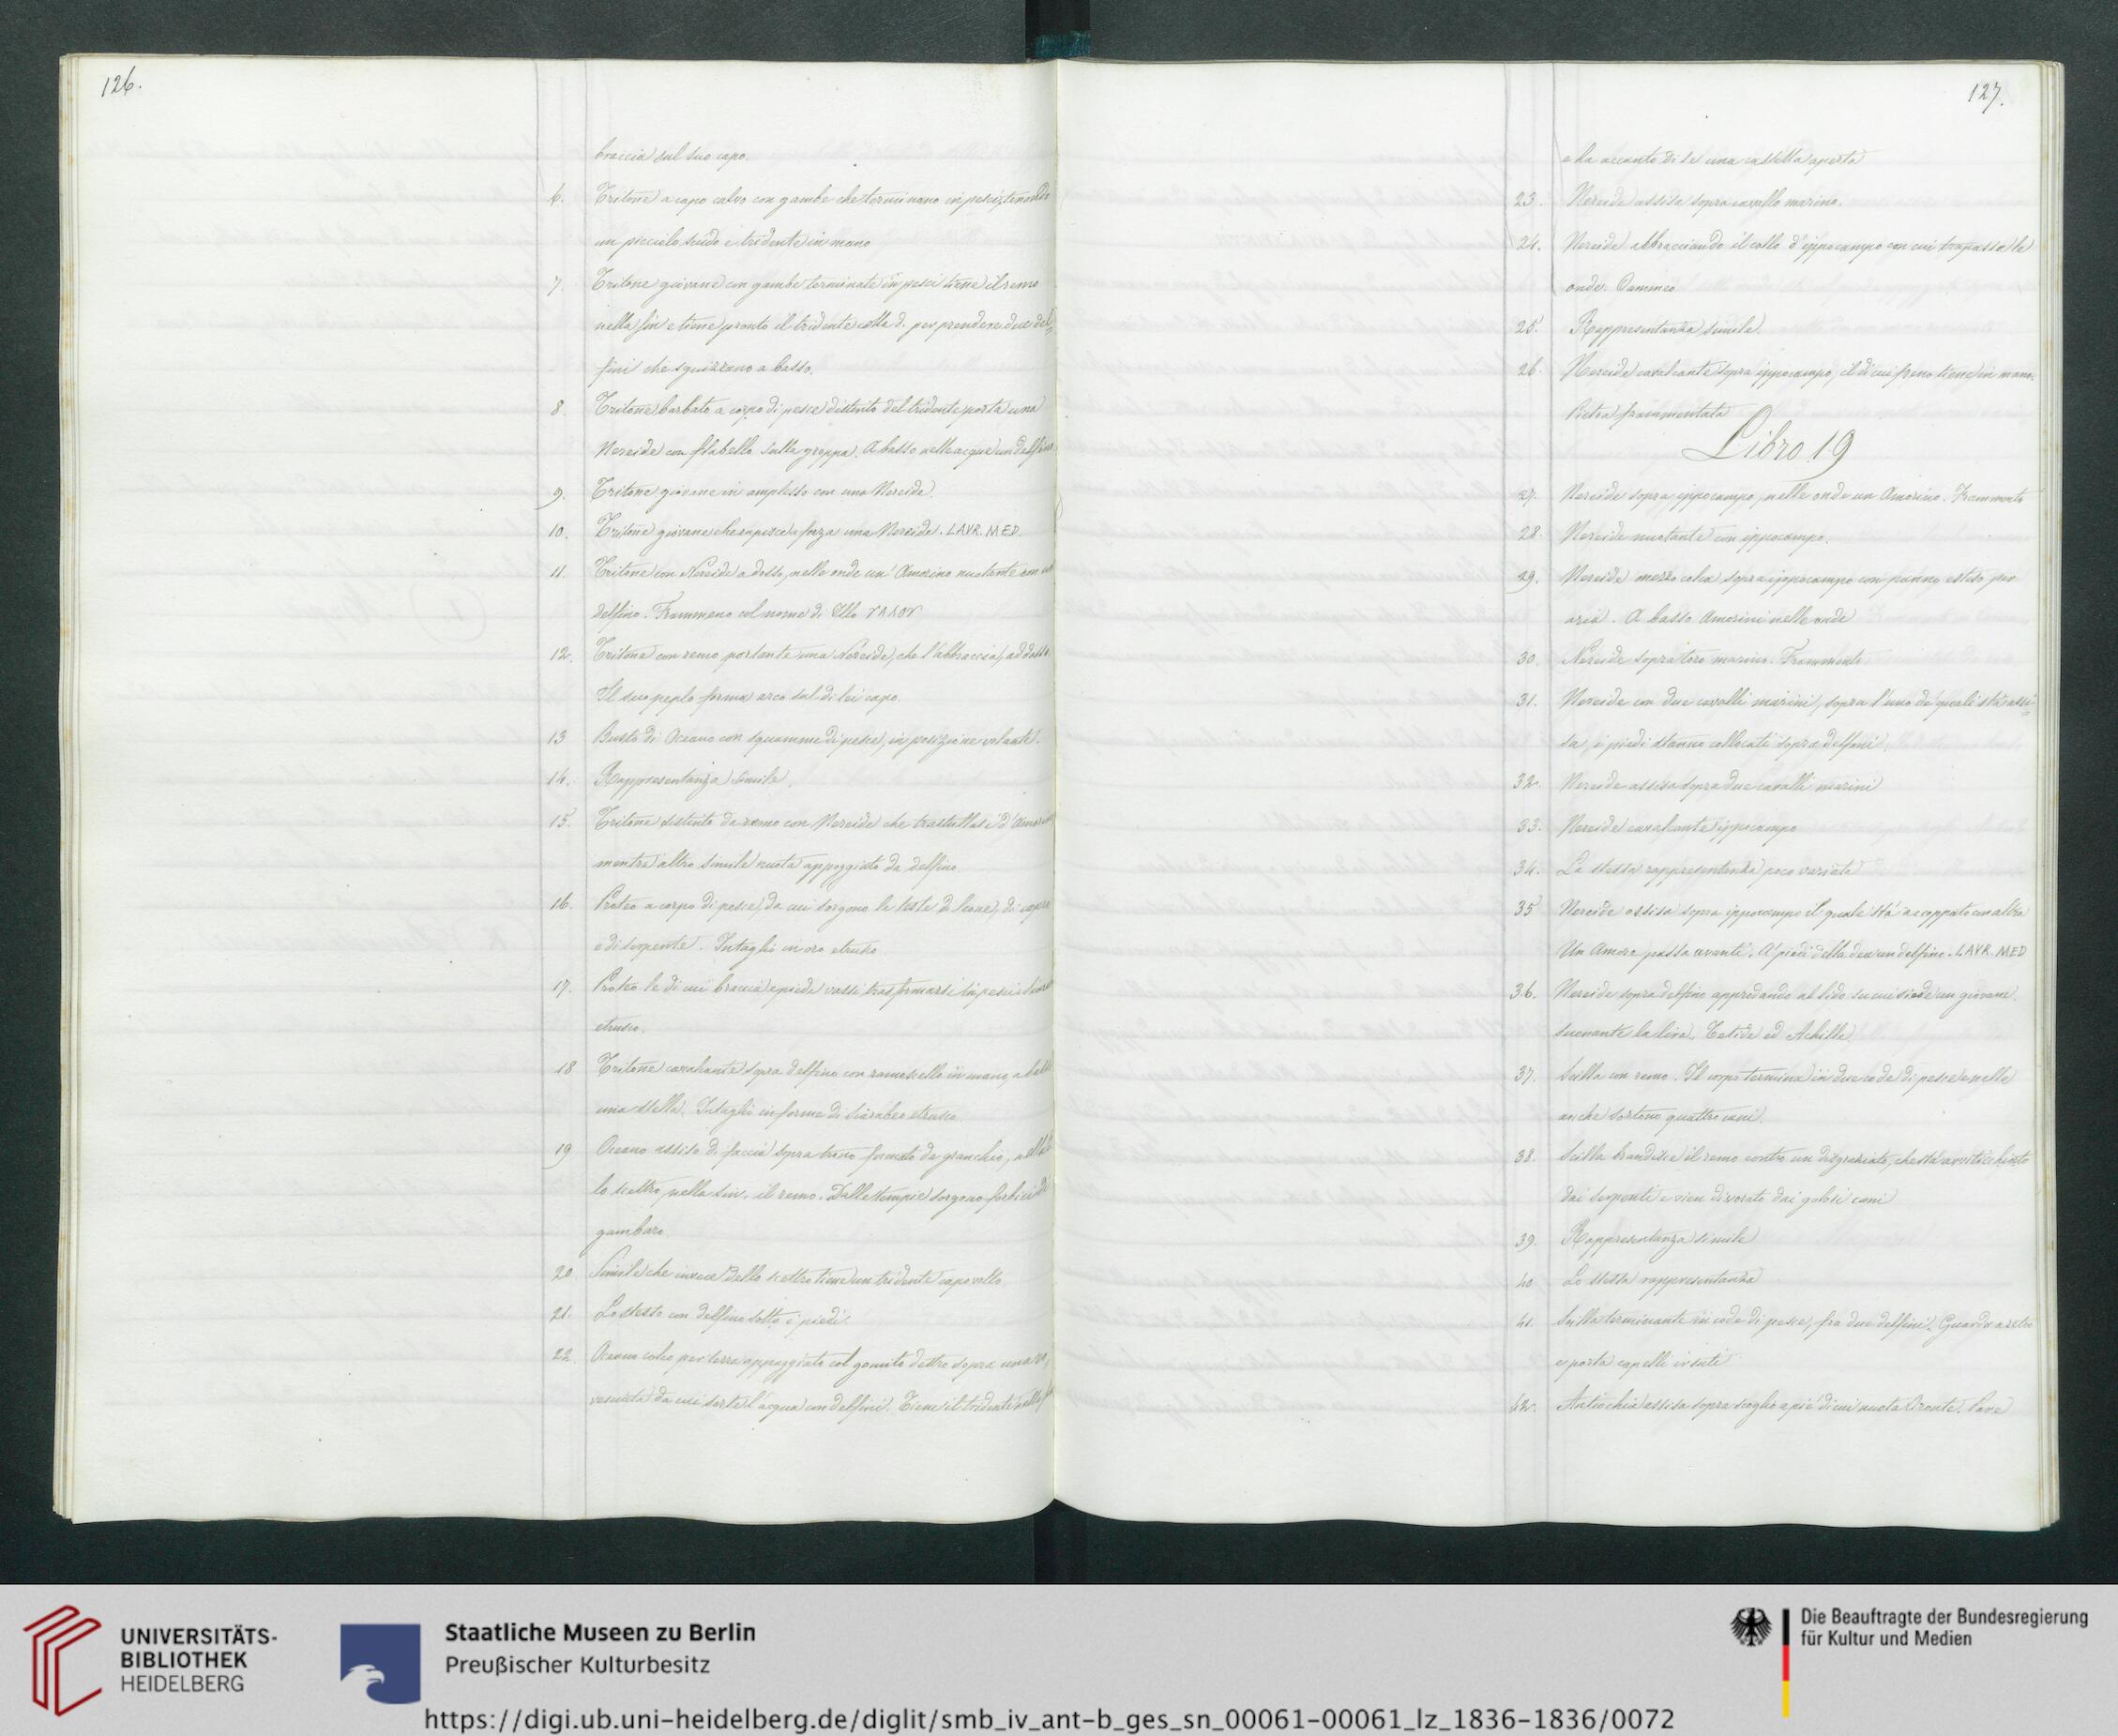 126.
braccia sul suo capo.
6. Tritone a capo calvo con gambe che terminano in pesci, tenendo
un picciolo scudo e tridente in mano
7. Tritone giovane con gambe terminate in pesci tiene il remo
nella sin e tiene pronto il tridente colla d. per prendere due del=
fini che sguizzano a basso.
8. Tritone barbato a corpo di pesce distinto del tridente porta una
Nereide con flabello sulla groppa. A basso nelle acque un delfino
9. Tritone giovane in amplesso con una Nereide.
10. Tritone giovane che rapisce a forza una Nereide. LAVR. MED
11. Tritone con Nereide a dosso, nelle onde un' Amorino nuotante con un
delfino. Frammeno col nome di Ollo
12. Tritone con remo portante una Nereide, che l'abbraccia, addosso
Il suo peplo forma arco sul di lei capo.
13 Busto di Oceano con squamme di pesce, in posizione volante.
14. Rappresentanza simile.
15. Tritone distinto da remo con Nereide che trastullasi d' Amorino
mentre altro simile nuota appoggiato da delfino
16. Proteo a corpo di pesce, da cui sorgono le teste di leone, di capra
e di serpente. Intaglio in oro etrusco
17. Proteo le di cui braccia e piedi vassi trasformarsi in pesci
etrusco.
18 Tritone cavalcante sopra delfino con ramoscello in mano, a lato
una stella. Intaglio in forma di Scarabeo etrusco.
19 Oceano assiso di faccia sopra trono formato da granchio, nella
lo scettro, nella sin. il remo. Dalle tempie sorgono forbici di
gambaro
20 Simile che invece dello scettro tiene un tridente capovolto.
21. Lo stesso con delfino sotto i piedi.
22 Oceano colco per terra appoggiato col gomito destro sopra una
vesciata da cui sorte l'acqua con delfini. Tiene il tridente nella
127.
e ha accanto di se una cassetta aperta
23. Nereide assisa sopra cavallo marino.
24. Nereide abbracciando il collo d'ippocampo con cui trapassa le
onde. Cammeo
25. Rappresentanza simile.
26. Nereide cavalcante sopra ippocampo, il di cui freno tiene in mano.
Pietra frammentata
Libro 19
27. Nereide sopra ippocampo, nelle onde un Amorino. Frammento
28. Nereide nuotante con ippocampo.
29. Nereide mezzo colca sopra ippocampo con panno esteso per
aria. A basso Amorini nelle onde
30. Nereide sopra toro marino. Frammento.
31. Nereide con due cavalli marini, sopra l'uno de' quali stà assi=
sa, i piedi stanno collocati sopra delfini.
32. Nereide assisa sopra due cavalli marini
33. Nereide cavalcante ippocampo
34. La stessa rappresentanza poco variata
35 Nereide assisa sopra ippocampo il quale stà accoppiato con altro
Un Amore passa avanti. A' piedi della dea un delfino. LAVR. MED
36. Nereide sopra delfino apprendando al lido su cui siede un giovane
suonante la lira. Tetide ed Achille
37. Scilla con remo. Il corpo termina in due code di pesce e nelle
anche sortono quattro cani.
38. Scilla brandisce il remo contro un disgraziato, che stà avvitichiato
dai serpenti e vien divorato dai golosi cani
39. Rappresentanza simile
40 La stessa rappresentanza
41. Scilla terminante in code di pesce, fra due delfini. Guarda a retro
e porta capelli irsuti
42. Antiochia assisa sopra scoglio a piè di cui nuota Oronte. Pare
UNIVERSITÄTS-
BIBLIOTHEK
HEIDELBERG
Staatliche Museen zu Berlin
Preußischer Kulturbesitz
Die Beauftragte der Bundesregierung
für Kultur und Medien
https://digi.ub.uni-heidelberg.de/diglit/smb_iv_ant-b_ges_sn_00061-00061_lz_1836-1836/0072